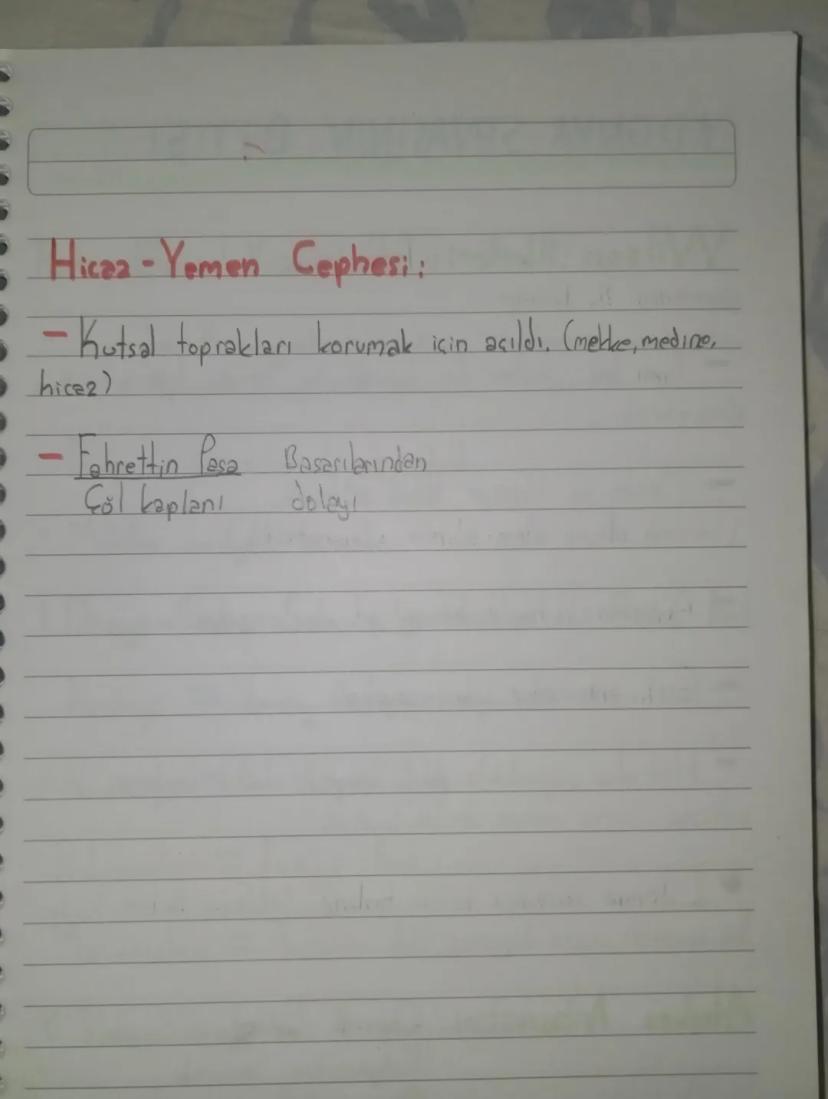 Hicaz - Yemen Cephesi:
- Kutsal toprakları korumak için açıldı. (mekke, medine,
hicaz)
- Fahrettin Paşa Başarılarından
Çöl kaplanı dolayı